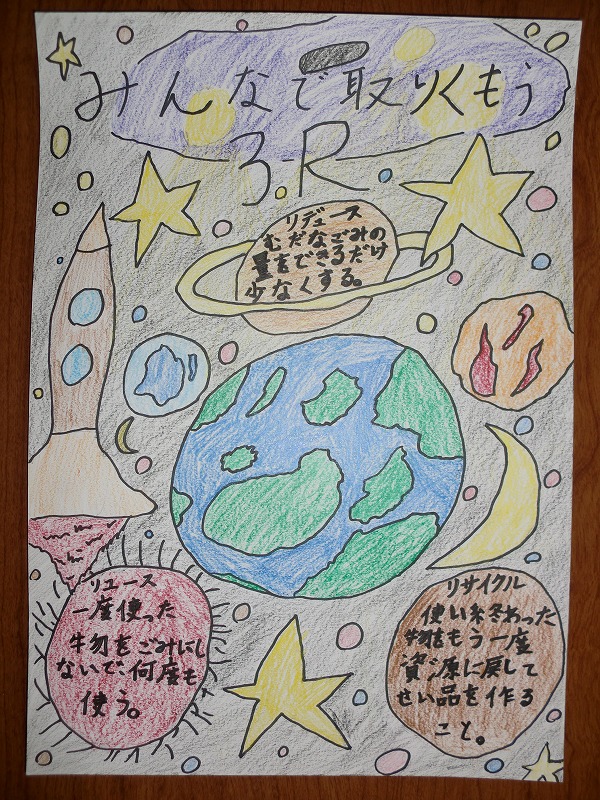 みんなで取りくもう
3R
リデュース
むだなごみの
量をできるだけ
少なくする。
リユース
一度使った
物をごみにし
ないで、何度も
使う。
リサイクル
使い終わった
物をもう一度
資源に戻して
せい品を作る
こと。